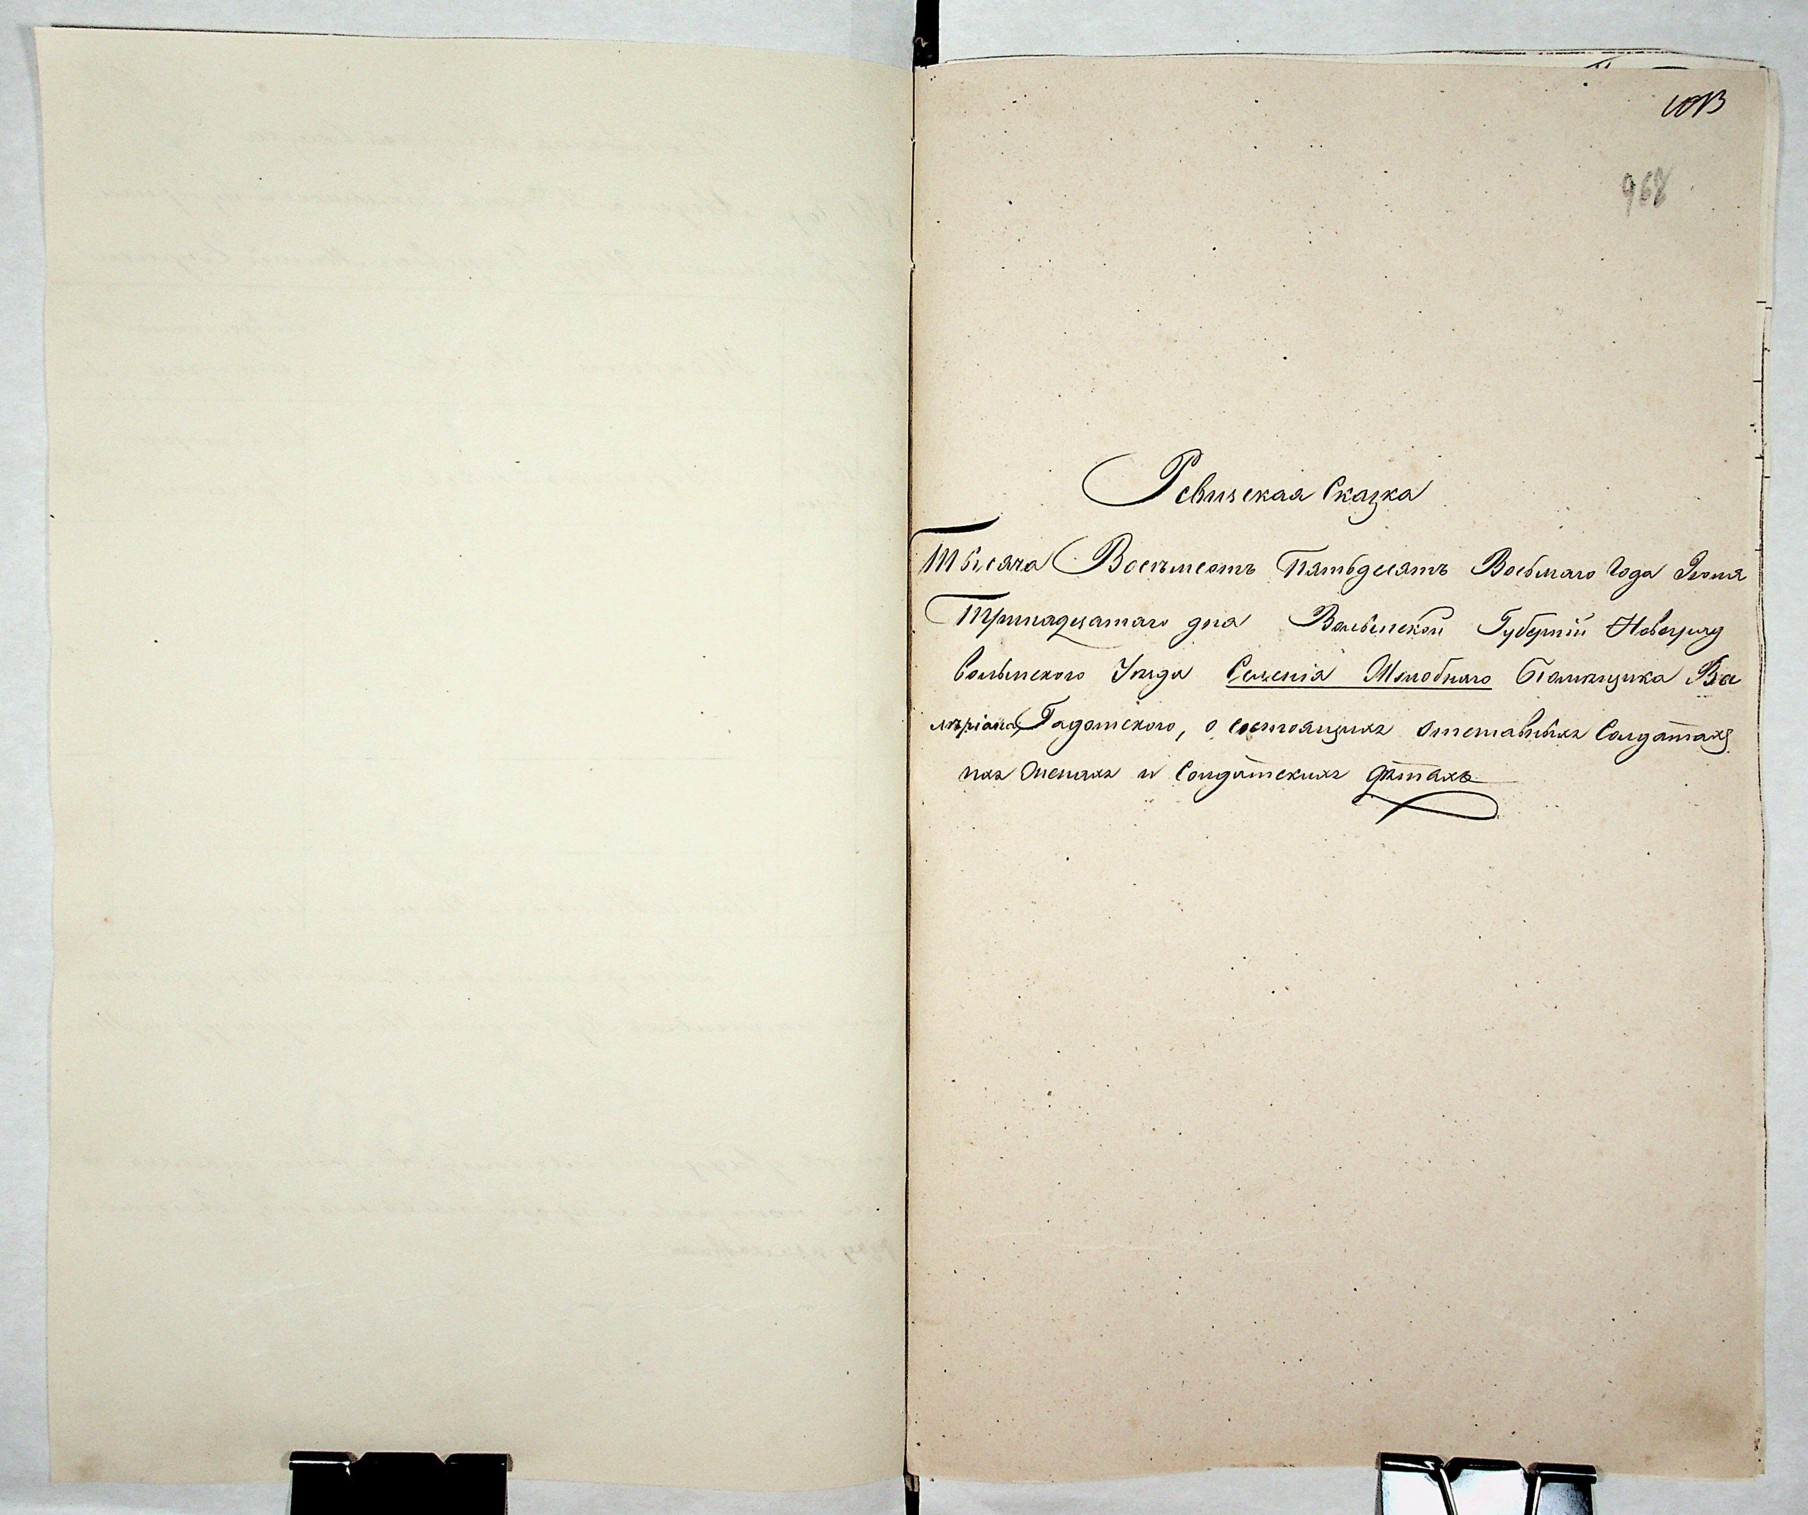 968
Ревизская Сказка
Тысяча Восемьсотъ Пятьдесятъ Восьмаго Года Іюня
Тринадцатаго дня Волынской Губерніи Новоград
волынского Уѣзда Селенія Жолобного Помѣщика Ва
леріана Гадомского, о состоящихъ отставныхъ Солдатахъ
ихъ Женахъ и Солдатскихъ дѣтяхъ